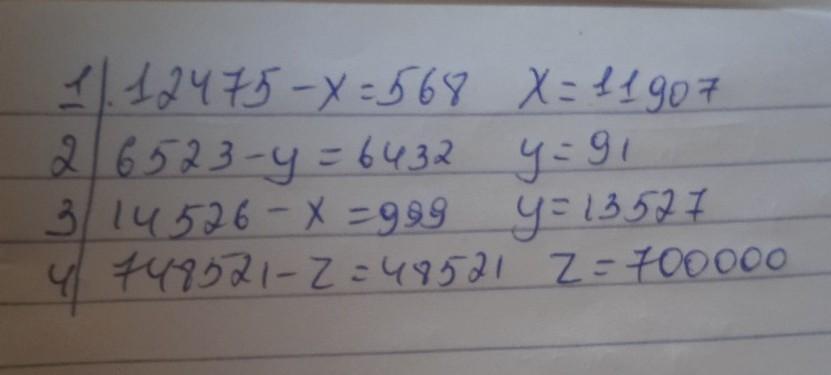 1 12475 - x = 568 x = 11907
2 6523 - y = 6432 y = 91
3 14526 - x = 999 y = 13527
4 748521 - z = 48521 z = 700000